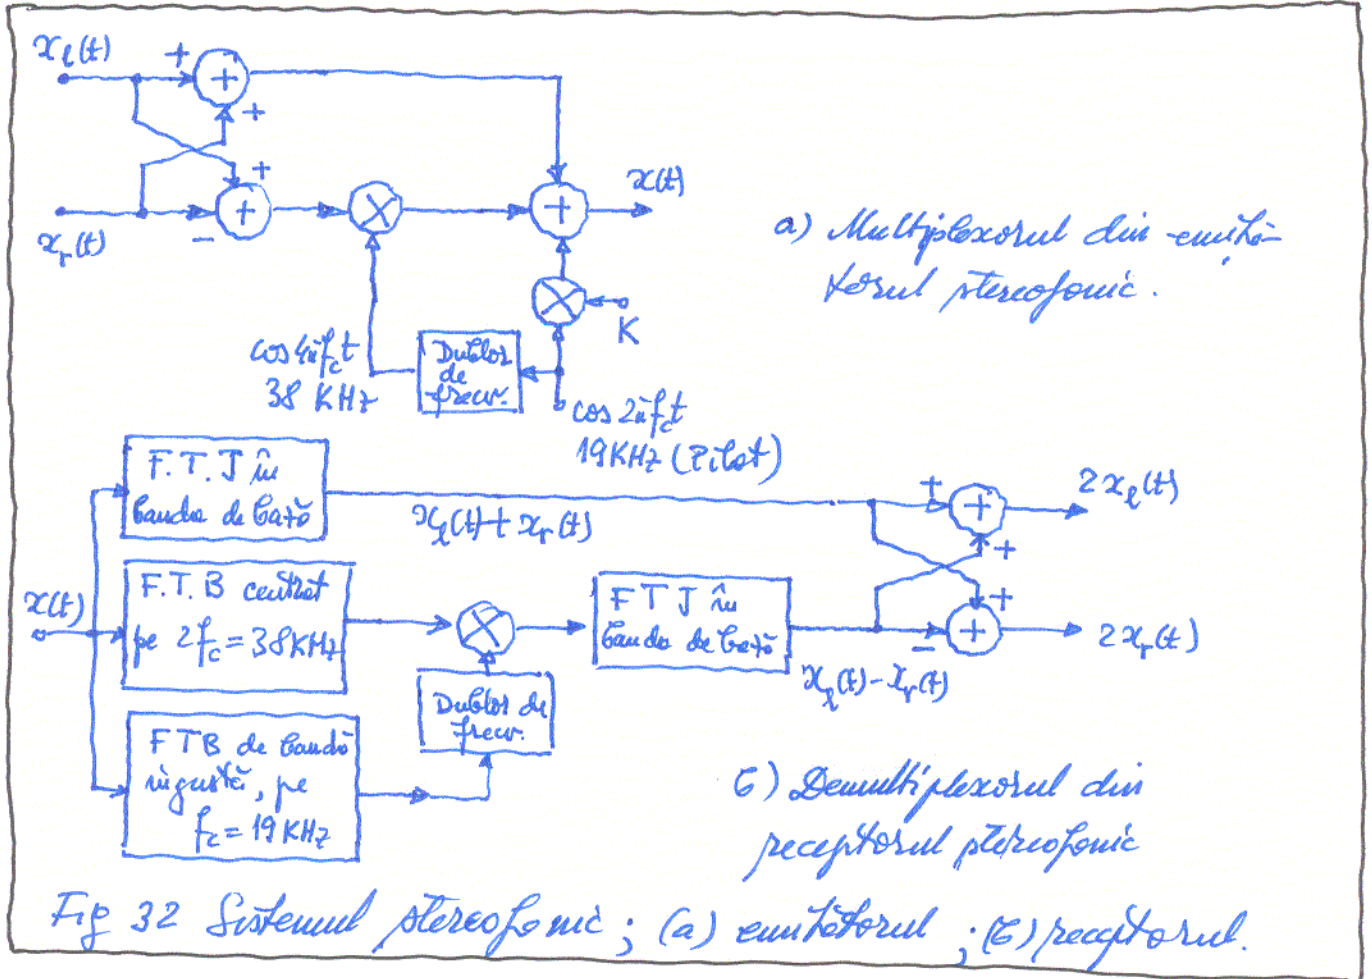 x_l(t)
+
+
+
x_r(t)
+
−
+
+
x(t)
K
cos 4πf_c t
38 KHz
Dublor
de
frecv.
cos 2πf_c t
19 KHz (Pilot)
a) Multiplexorul din emiță-
torul stereofonic.
x(t)
F.T.J în
banda de bază
x_l(t) + x_r(t)
F.T.B centrat
pe 2f_c = 38 KHz
FTB de bandă
îngustă, pe
f_c = 19 KHz
Dublor de
frecv.
F T J în
banda de bază
x_l(t) − x_r(t)
+
+
+
2x_l(t)
+
−
+
2x_r(t)
b) Demultiplexorul din
receptorul stereofonic
Fig 32 Sistemul stereofonic; (a) emițătorul; (b) receptorul.